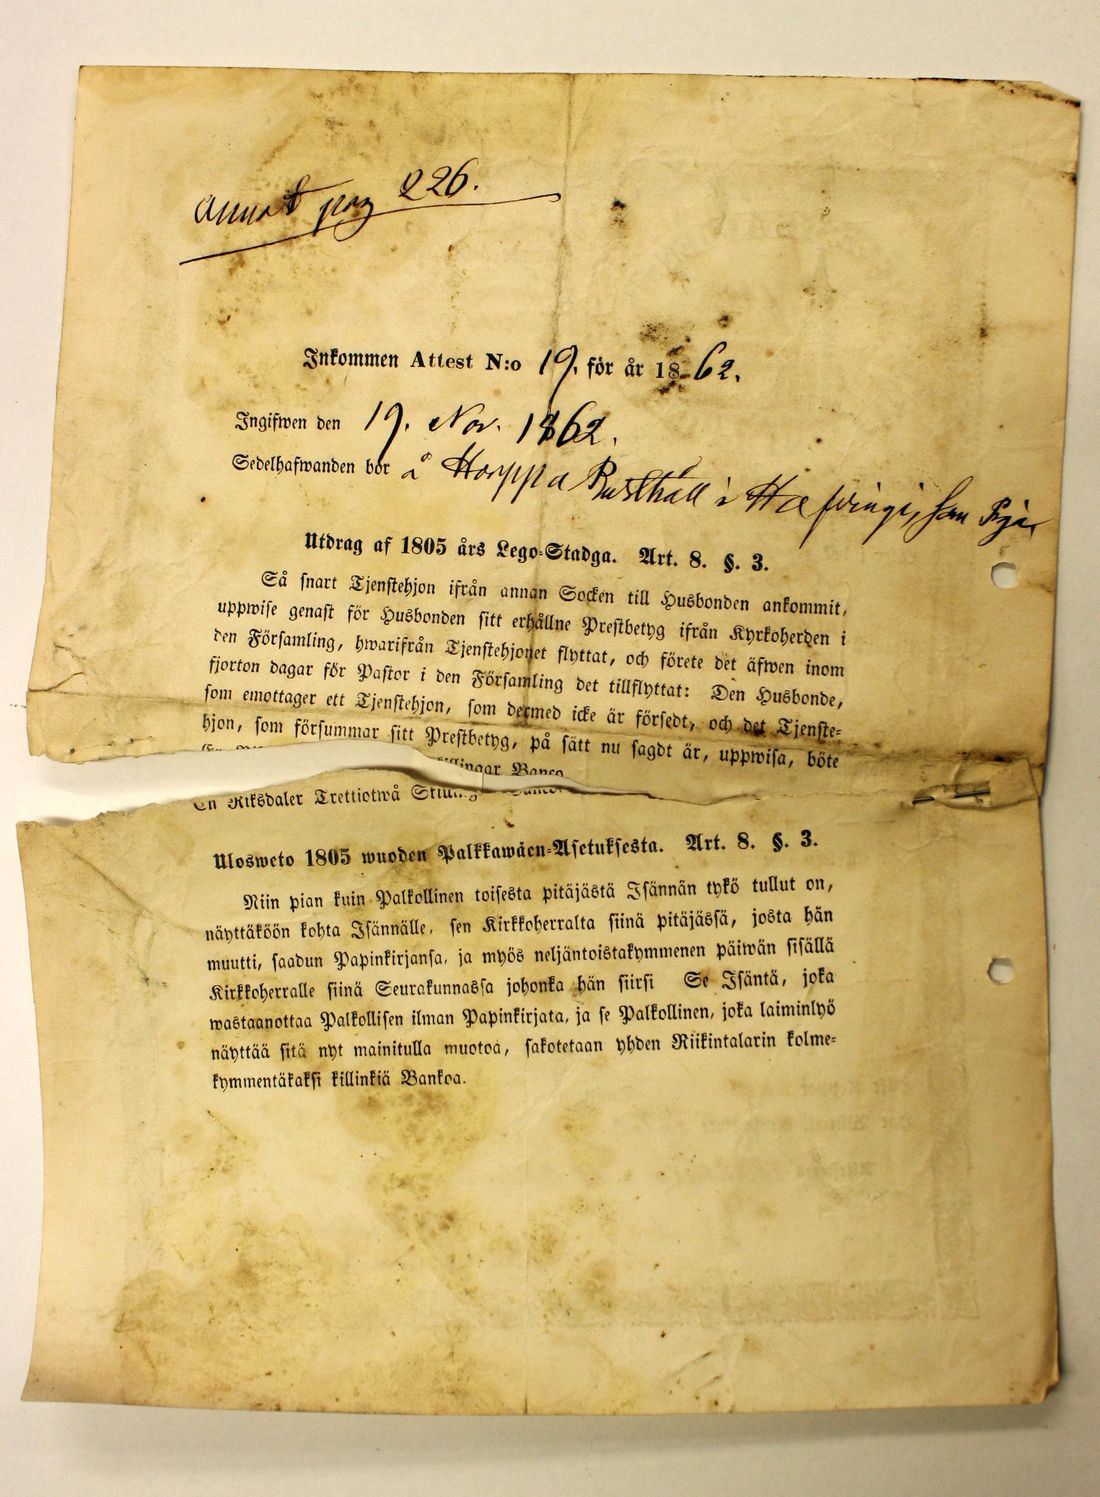 pag 226.
Inkommen Attest N:o 19. för år 1862.
Ingifwen den 19. Nov. 1862.
Sedelhafwanden bor å Horppa Rusthåll i
Utdrag af 1805 års Lego-Stadga. Art. 8. §. 3.
Så snart Tjenstehjon ifrån annan Socken till Husbonden ankommit,
uppwise genast för Husbonden sitt erhållne Prestbetyg ifrån Kyrkoherden i
den Församling, hwarifrån Tjenstehjonet flyttat, och förete det äfwen inom
fjorton dagar för Pastor i den Församling det tillflyttat: Den Husbonde,
som emottager ett Tjenstehjon, som dermed icke är försedt, och det Tjenste-
hjon, som försummar sitt Prestbetyg, på sätt nu sagdt är, uppwisa, böte
En Riksdaler Trettiotwå Skillingar Banco.
Ulosweto 1805 wuoden Palkkawäen-Asetuksesta. Art. 8. §. 3.
Niin pian kuin Palkollinen toisesta pitäjästä Isännän tykö tullut on,
näyttäköön kohta Isännälle, sen Kirkkoherralta siinä pitäjässä, josta hän
muutti, saadun Papinkirjansa, ja myös neljäntoistakymmenen päiwän sisällä
Kirkkoherralle siinä Seurakunnassa johonka hän siirsi Se Isäntä, joka
wastaanottaa Palkollisen ilman Papinkirjata, ja se Palkollinen, joka laiminlyö
näyttää sitä nyt mainitulla muotoa, sakotetaan yhden Riikintalarin kolme-
kymmentäkaksi killinkiä Bankoa.